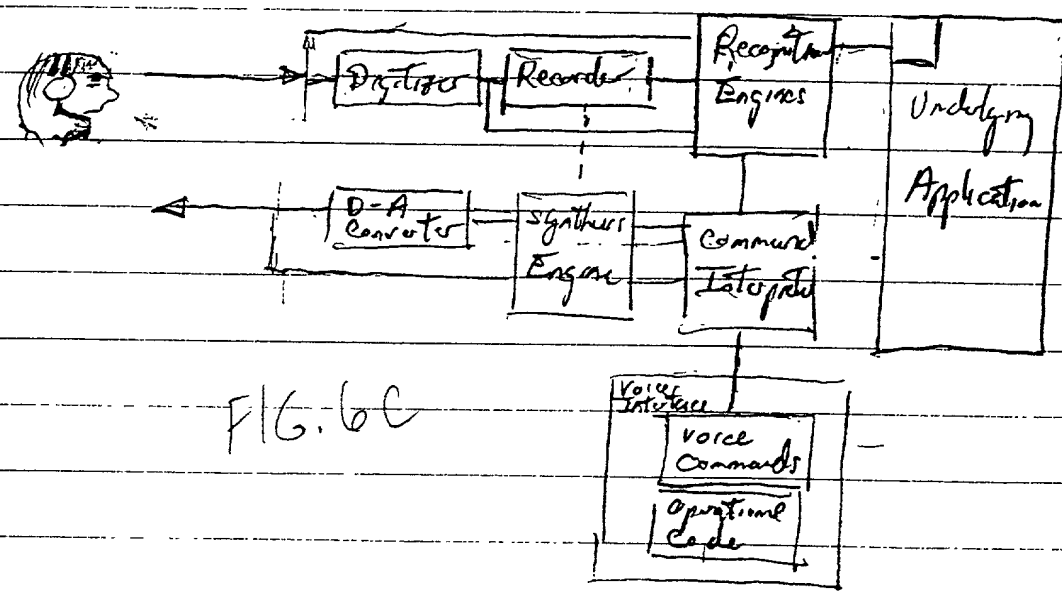 Digitizer
Recorder
Recognition
Engines
Underlying
Application
D-A
Converter
Synthesis
Engine
Command
Interpreter
FIG. 6C
Voice
Interface
Voice
Commands
Operational
Code